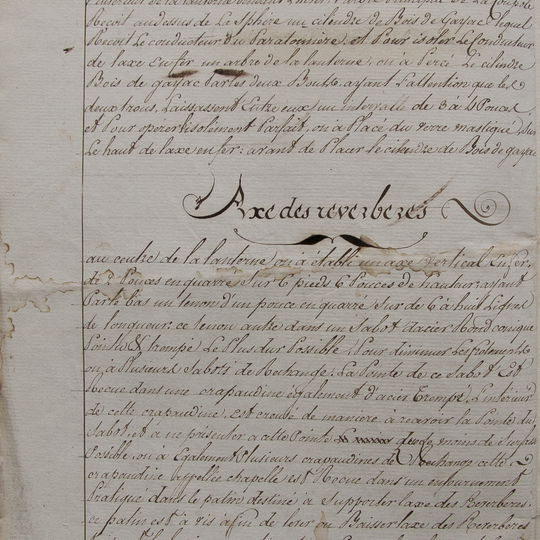 reçoit audessus de La Sphère un cilendre de Bois de Gayac lequel
Recoit Le conducteur du Paratonnière, et Pour isoler Le Conducteur
de l'axe En fer un arbre de la lanterne, on a Percé Le cilendre
Bois de gayac Par les deux Bouts. ayant L'attention que les
deux trous, Laissassent Entre eux un intervalle de 3 à 4 Pouces
et Pour operer l'isolement Parfait, on a Placé du verre mastiqué Sur
Le haut de l'axe en fer: avant de Placer Le cilendre de Bois de gayac
Axe des reverberes
au centre de la lanterne on a établi un axe vertical En fer
de 2 Pouces en quarré Sur 6 pieds 6 Pouces de hauteur ayant
Par le bas un tenon d'un pouce en quarré Sur de 6 à huit Lignes
de longueur: ce tenon entre dans un Sabot d'acier Rond conique
Pointu & trempé Le Plus dur Possible. Pour diminuer Les frotements
on a Plusieurs Sabots de Rechange. La Pointe de ce Sabot Est
Recue dans une crapaudine également d'acier Trempé. L'interieur
de cette crapaudine, est creusé de maniere à recevoir la Pointe du
Sabot, et à ne présenter a cette Pointe que le moins de Surface
Possible. on a Egalement Plusieurs crapaudines de Rechange cette
crapaudine appellée chapelle est Recue dans un enfournement
Pratiqué dans le patin destiné à Supporter l'axe des Reverberes.
ce patin est à vis afin de lever ou Baisser l'axe des Reverberes